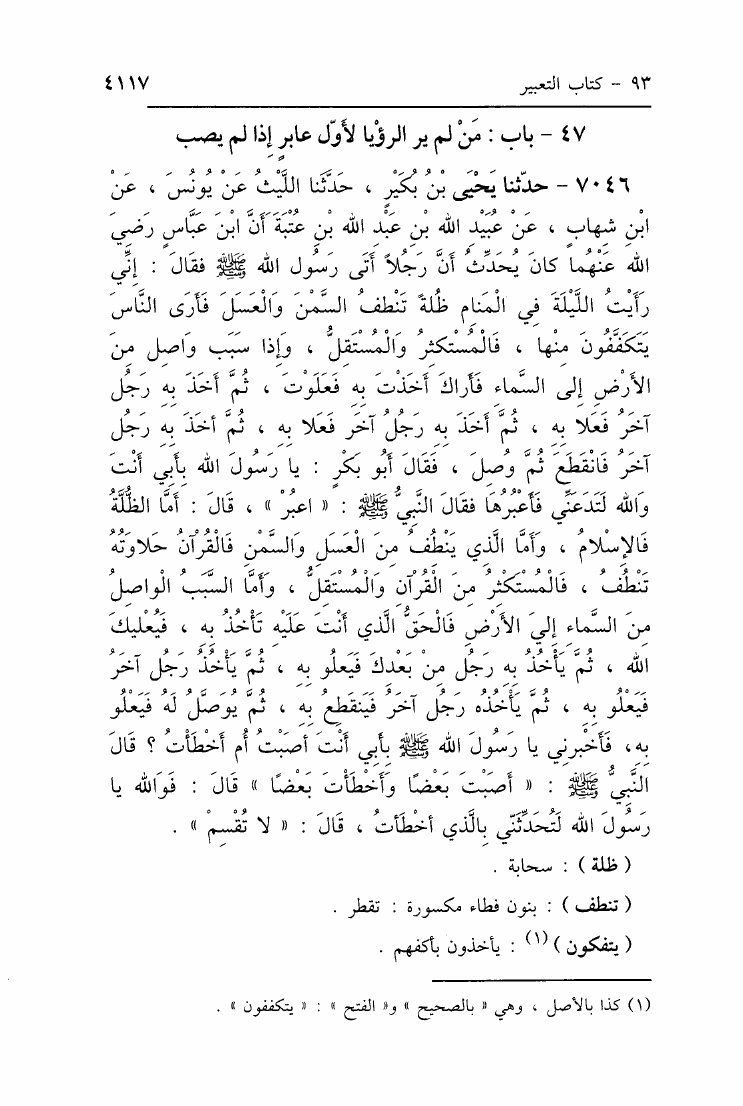 ٩٣ – كتاب التعبير ٤١١٧
٤٧ – باب : مَنْ لم ير الرؤْيا لأوّل عابرٍ إذا لم يصب
٧٠٤٦ – حدّثنا يَحْيَى بْنُ بُكَيْرٍ ، حَدَّثَنا اللَّيْثُ عَنْ يُونُسَ ، عَنْ
ابْنِ شهابٍ ، عَنْ عُبَيْدِ الله بْنِ عَبْدِ الله بْنِ عُتْبَةَ أَنَّ ابْنَ عَبَّاسٍ رَضِيَ
الله عَنْهُما كانَ يُحَدِّثُ أَنَّ رَجُلاً أتَى رَسُولَ الله ﷺ فقالَ : إنِّي
رَأَيْتُ اللَّيْلَةَ فِي الْمَنامِ ظُلةً تَنْطفُ السَّمْنَ وَالْعَسَلَ فَأرَى النَّاسَ
يَتَكَفَّفُونَ مِنْها ، فَالْمُسْتَكثرُ وَالْمُسْتَقلُّ ، وَإذا سَبَب وَاصِل مِنَ
الأَرْضِ إلى السَّماءِ فَأَراكَ أَخَذْتَ بِهِ فَعَلَوْتَ ، ثُمَّ أخَذَ بِهِ رَجُلُ
آخَرُ فَعَلا بِهِ ، ثُمَّ أَخَذَ بِهِ رَجُلُ آخَر فَعَلا بِهِ ، ثُمَّ أخَذَ بِهِ رَجُل
آخَرُ فَانْقَطَعَ ثُمَّ وُصِلَ ، فَقالَ أَبُو بَكْرٍ : يا رَسُولَ الله بِأَبِي أَنْتَ
وَالله لَتَدَعَنِّي فَأَعْبُرُهَا فقالَ النَّبِيُّ ﷺ : « اعبُرْ » ، قالَ : أمَّا الظُّلَّةُ
فَالإسْلامُ ، وَأمَّا الَّذِي يَنْطُفُ مِنَ الْعَسَلِ وَالسَّمْنِ فَالْقُرْآنُ حَلاوَتُهُ
تَنْطُفُ ، فَالْمُسْتَكْثرُ مِنَ الْقُرْآنِ وَالْمُسْتَقلُّ ، وَأمَّا السَّبَبُ الْواصِلُ
مِنَ السَّماءِ إليَ الأَرْضِ فَالْحَقُّ الَّذي أَنْتَ عَلَيْهِ تَأْخُذُ بِهِ ، فَيُعْليكَ
الله ، ثُمَّ يَأْخُذُ بِهِ رَجُل مِنْ بَعْدِكَ فَيَعلُو بِهِ ، ثُمَّ يَأْخُذُ رَجُل آخَرُ
فَيَعْلُو بِهِ ، ثُمَّ يَأْخُذُه رَجُل آخَرُ فَيَنقَطِعُ بِهِ ، ثُمَّ يُوَصَّلُ لَهُ فَيَعْلُو
بِهِ، فَأخْبرنِي يا رَسُولَ الله ﷺ بِأَبِي أَنْتَ أصَبْتُ أم أخْطَأْتُ ؟ قالَ
النَّبِيُّ ﷺ : « أصَبْتَ بَعْضًا وَأَخْطَأت بَعْضًا » قالَ : فَوَالله يا
رَسُولَ الله لَتُحَدِّثَنّي بِالَّذي أخْطَأتُ ، قَالَ : « لا تُقْسِمْ » .
( ظلة ) : سحابة .
( تنطف ) : بنون فطاء مكسورة : تقطر .
( يتفكون )(١) : يأخذون بأكفهم .
(١) كذا بالأصل ، وهي « بالصحيح » و« الفتح » : « يتكففون » .